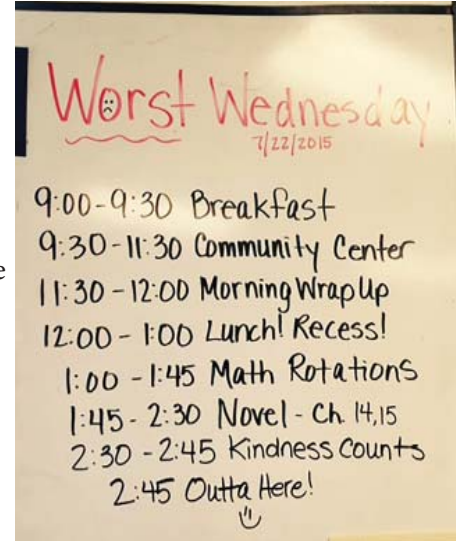 Worst Wednesday
7/22/2015
9:00-9:30 Breakfast
9:30-11:30 Community Center
11:30-12:00 Morning Wrap Up
12:00-1:00 Lunch! Recess!
1:00-1:45 Math Rotations
1:45-2:30 Novel - Ch. 14,15
2:30-2:45 Kindness Counts
2:45 Outta Here!